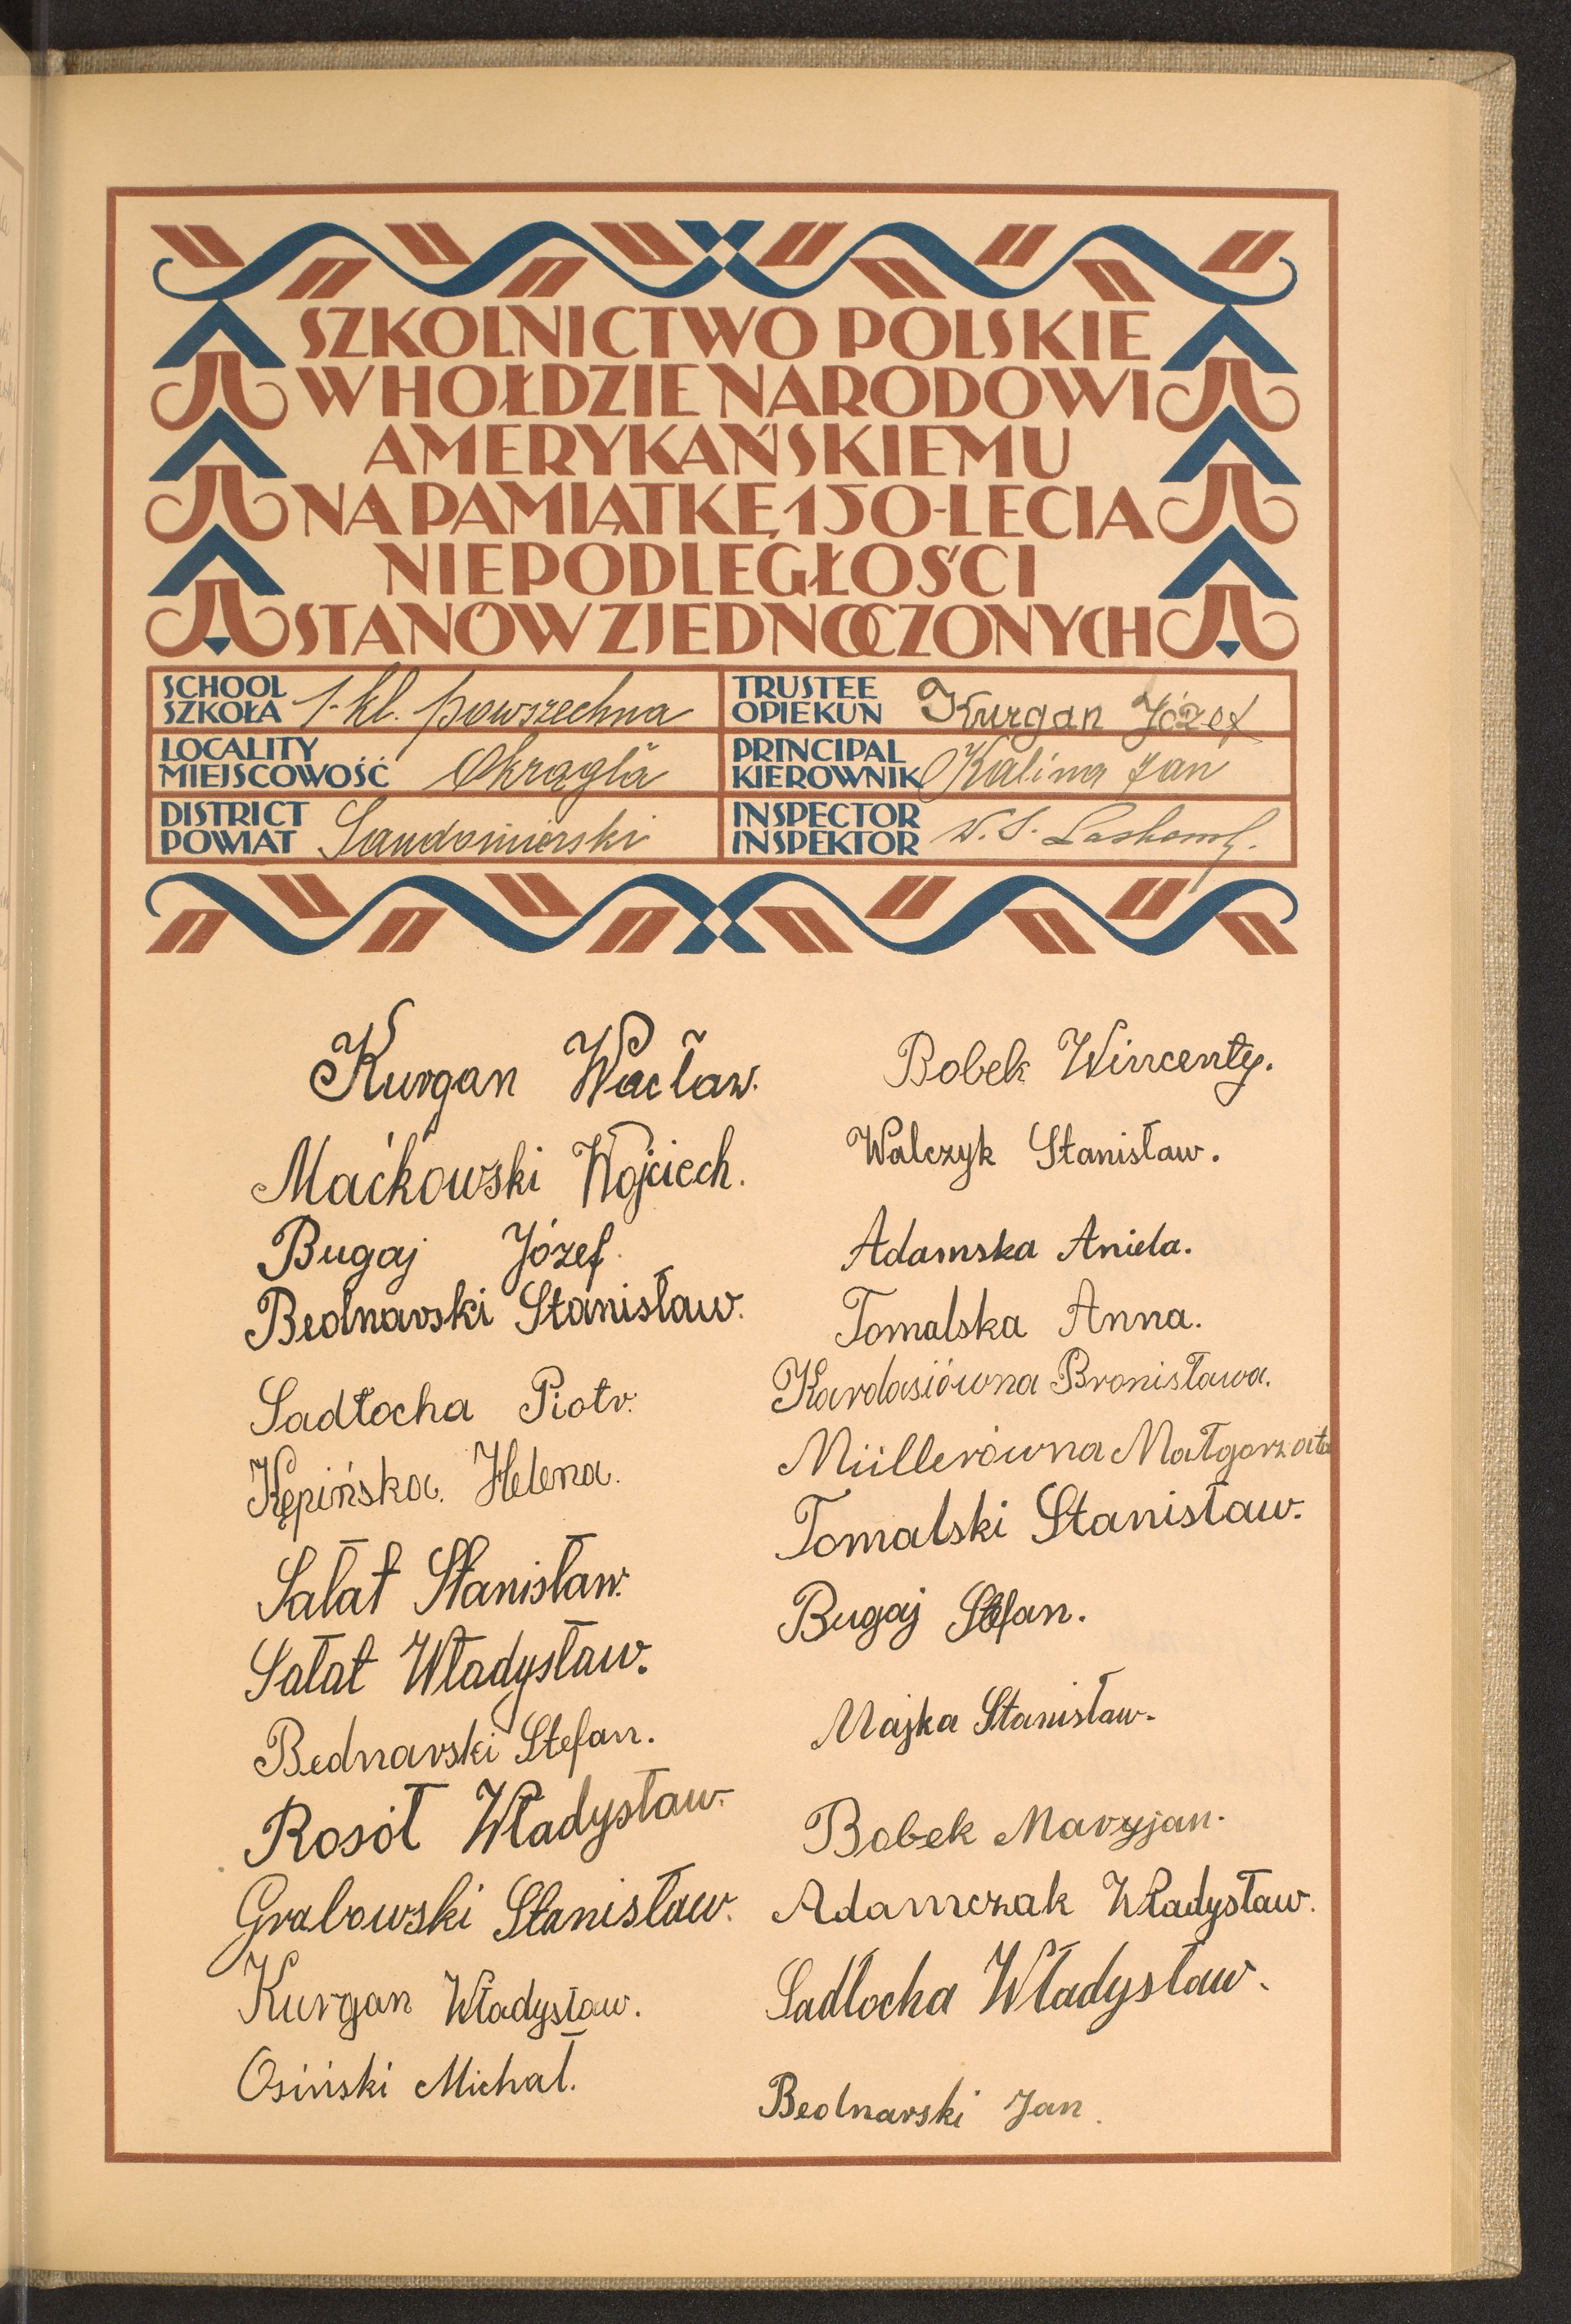 SZKOLNICTWO POLSKIE
W HOŁDZIE NARODOWI
AMERYKAŃSKIEMU
NA PAMIĄTKĘ 150-LECIA
NIEPODLEGŁOŚCI
STANÓW ZJEDNOCZONYCH
SCHOOL
SZKOŁA 1-kl. powszechna
TRUSTEE
OPIEKUN Kurgan Józef
LOCALITY
MIEJSCOWOŚĆ Okrągła
PRINCIPAL
KIEROWNIK Kalina Jan
DISTRICT
POWIAT Sandomierski
INSPECTOR
INSPEKTOR W. S.
Kurgan Wacław.
Maćkowski Wojciech.
Bugaj Józef.
Bednarski Stanisław.
Sadłocha Piotr.
Kępińska. Helena.
Sałat Stanisław.
Sałat Władysław.
Bednarski Stefan.
Rosół Władysław.
Grabowski Stanisław.
Kurgan Władysław.
Osiński Michał.
Bobek Wincenty.
Walczyk Stanisław.
Adamska Aniela.
Tomalska Anna.
Kardasiówna Bronisława.
Müllerówna Małgorzata
Tomalski Stanisław.
Bugaj Stefan.
Majka Stanisław.
Bobek Maryjan.
Adamczak Władysław.
Sadłocha Władysław.
Bednarski Jan.